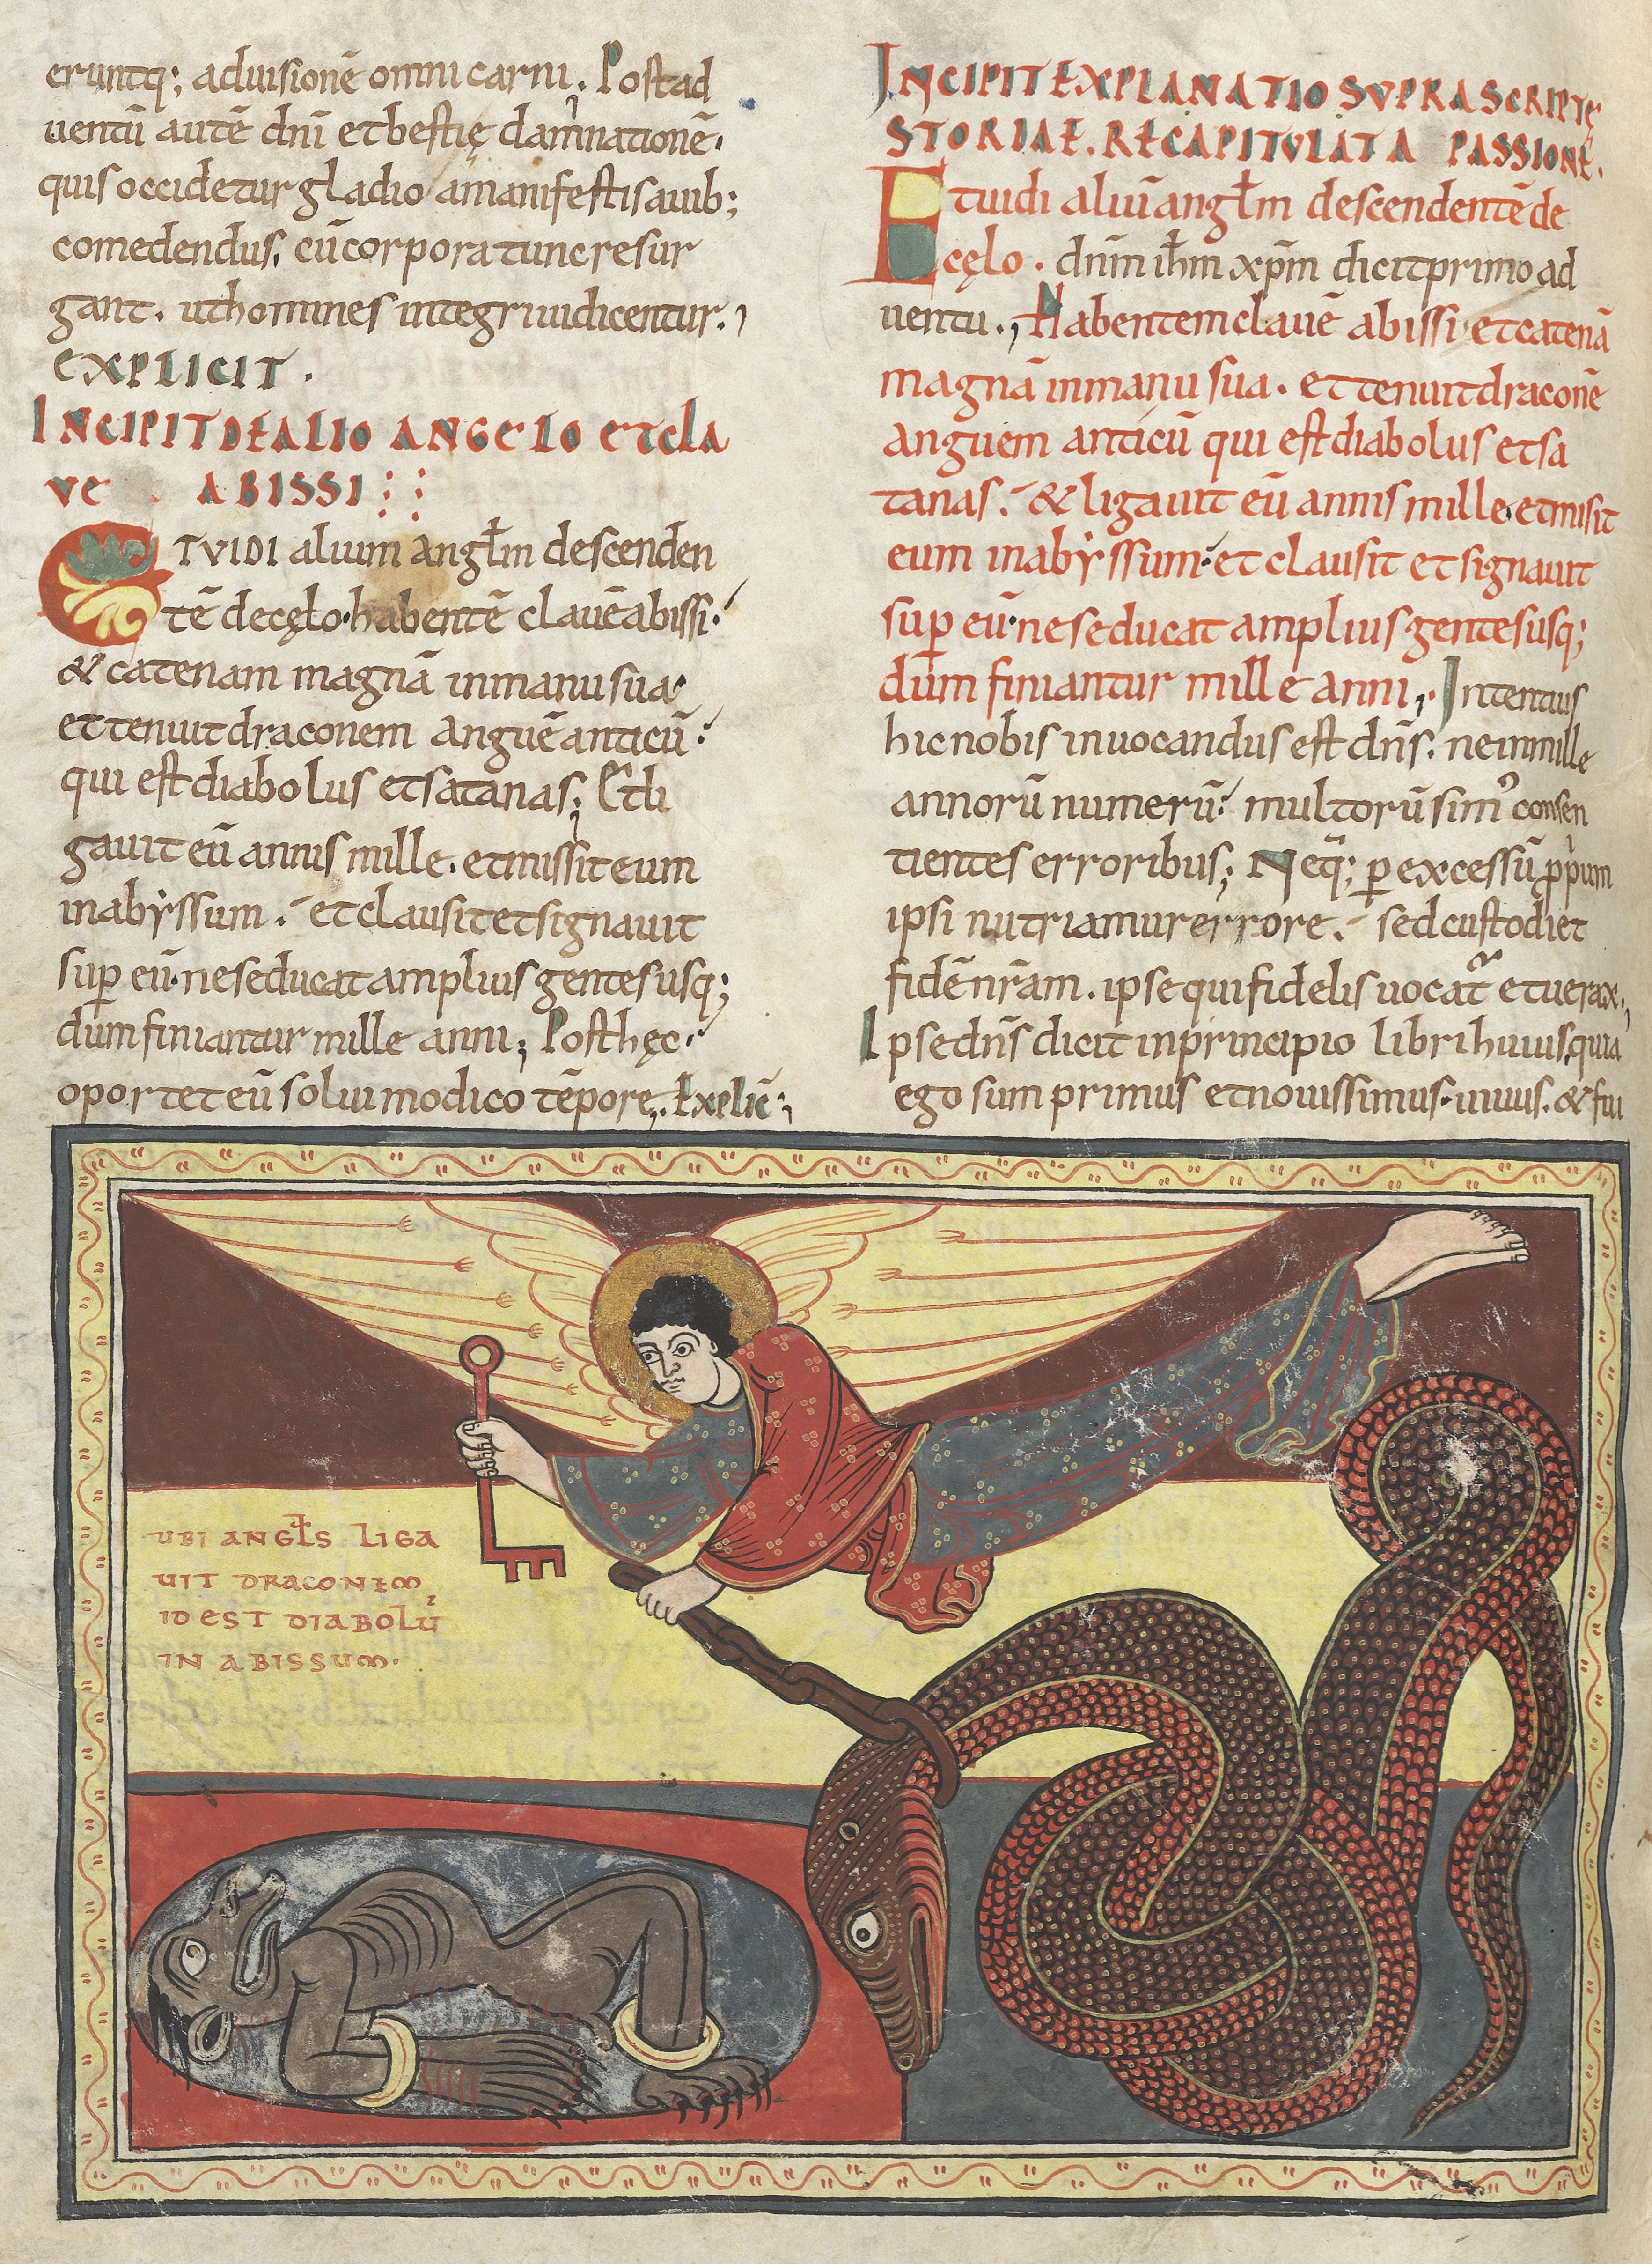 eruntq; aduisionē omni carni. Postad
uentū autē dn̄i et bestię damnationē.
quis occidetur gladio amanifestis auib;
comedendus. cū corpora tunc resur
gant. ut homines integri iudicentur.
EXPLICIT.
INCIPIT DE ALIO ANGELO ET CLA
VE ABISSI
ETVIDI alium angl̄m descenden
tē de cęlo. habentē clauē abissi.
& catenam magnā inmanu sua
et tenuit draconem anguē anticū.
qui est diabolus et satanas; Et li
gauit eū annis mille. et missit eum
in abyssum. et clausit et signauit
sup̄ eū. ne seducat amplius gentes usq;
dum finiantur mille anni; Post hęc.
oportet eū solui modico tēpore. Explic̄;
INCIPIT EXPLANATIO SVPRASCRIPTĘ
STORIAE. RECAPITVLAT A PASSIONE.
Et uidi aliū angl̄m descendentē de
cęlo. dn̄m ih̄m xp̄m dicit primo ad
uentu., Habentem clauē abissi et catenā
magnā inmanu sua. et tenuit draconē
anguem anticū qui est diabolus et sa
tanas. & ligauit eū annis mille. et misit
eum in abyssum. et clausit et signauit
sup̄ eū. ne seducat amplius gentes usq;
dum finiantur mille anni,. Intentius
hic nobis inuocandus est dn̄s. ne inmille
annorū numerū. multorū simꝰ consen
tientes erroribus; Neq; p̄ excessū pprium
ipsi nutriamur errore. sed custodiet
fidē nr̄am. ipse qui fidelis uocat̄ et uerax.,
Ipse dn̄s dicit inprincipio libri huius, quia
ego sum primus et nouissimus. uiuus. & fui
UBI ANGLS LIGA
UIT DRACONEM
ID EST DIABOLŪ
IN ABISSUM.